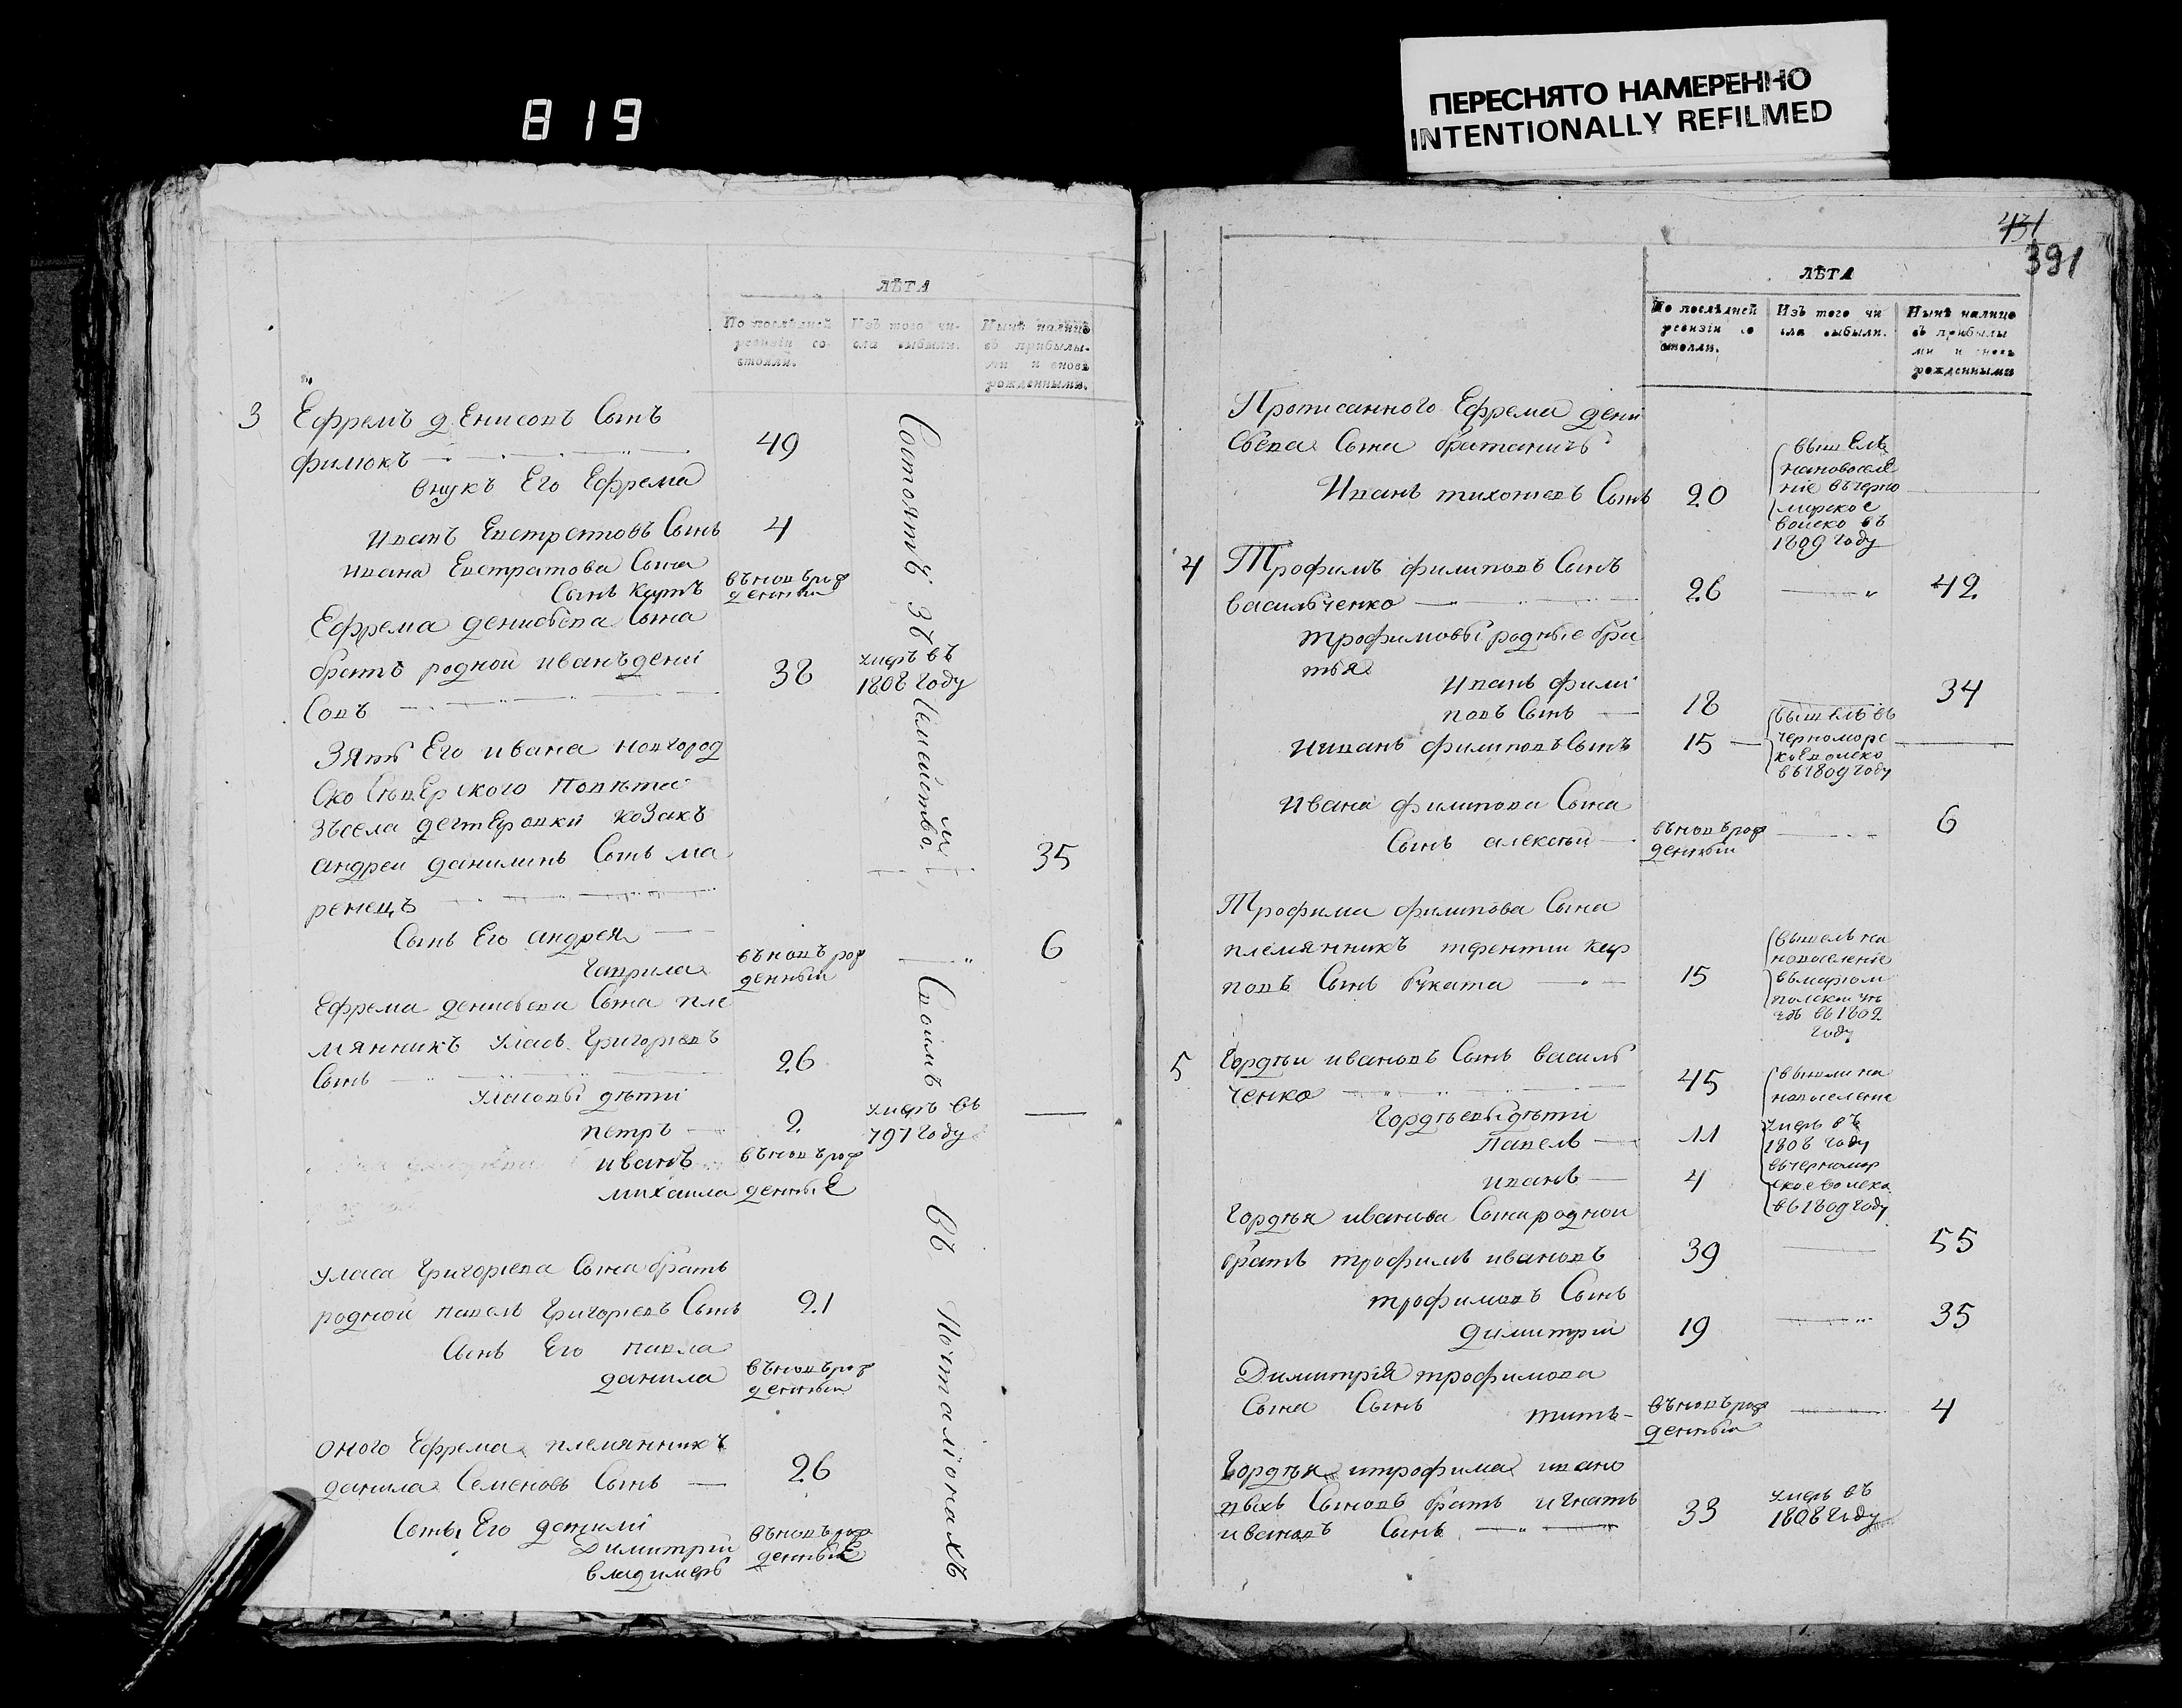 819
ПЕРЕСНЯТО НАМЕРЕННО
INTENTIONALLY REFILMED
ЛѢТА
По послѣдней ревизіи со-
стояли.
Изъ того чи-
сла выбыли.
Нынѣ налицо
съ прибылы-
ми и вновь
рожденными.
3 Ефремъ денисовъ Сынъ
филюкъ 49
внукъ Его Ефрема
иванъ Евстратовъ Сынъ 4
ивана Евстратова Сына
Сынъ вновьрож
денный
Ефрема денисьева Сына
братъ родной иванъ дени 38 умръ въ
совъ 1808 году
Зять Его ивана новгород
Ско Сѣверского Повѣта
Зъсела дегтеровки козакъ
андрей данилинъ Сынъ ма 35
ренецъ
Сынъ Его андрея
гаврила въновърож 6
денный
Ефрема денисьева Сына пле
мянникъ Уласъ Григорьевъ
Сынъ 26
Уласовы дѣти
петръ 2 умръ въ
797 году
иванъ въновърож
михаила денныЕ
Уласа Григорьева Сына братъ
родной павелъ Григорьевъ Сынъ 21
Сынъ Его павла
данила въновърож
денный
оного Ефрема племянникъ
данила Семеновъ Сынъ 26
Сынъ Его данили
Димитрий въновърож
владимеръ денныЕ
Состоятъ Зъ Семействоми Своимъ въ
431
391
ЛѢТА
По послѣдней
ревизіи со
стояли.
Изъ того чи
сла выбыли.
Нынѣ налицо
съ прибылы
ми и вновь
рожденными
Прописанного Ефрема дени
сьева Сына братаничъ
Иванъ тихоновъ Сынъ 20 вышЕлъ
нановоселЕ
ніе въчерно
морское
войско въ
1809 году
4 Трофимъ филиповъ Сынъ
васильченко 26 42
трофимовы родные бра
тья
Иванъ фили
повъ Сынъ 18 34
иванъ филиповъ Сынъ 15 вышЕлъ въ
черноморс
коЕ войско
въ1809 году
Ивана филипова Сына
Сынъ алексѣй въновърож 6
денный
Трофима филипова Сына
племянникъ терентий кар
повъ Сынъ буката 15 вышелъ на
новоселеніе
въмариом
полской уѣ
здъ въ1802
году
5 Гордѣй ивановъ Сынъ василь
ченко 45 вышли на
новоселение
Гордѣевы дѣти
Павелъ 11 умеръ въ
1808 году
иванъ 4 въчерномор
ское войско
въ1809 году
Гордѣя иванова Сына родной
братъ трофимъ ивановъ 39 55
трофимовъ Сынъ
димитрий 19 35
Димитрія трофимова
Сына Сынъ титъ въновърож 4
денный
Гордѣя итрофима ивано
выхъ Сыновъ братъ игнатъ 33 умеръ въ
ивановъ Сынъ 1808 году